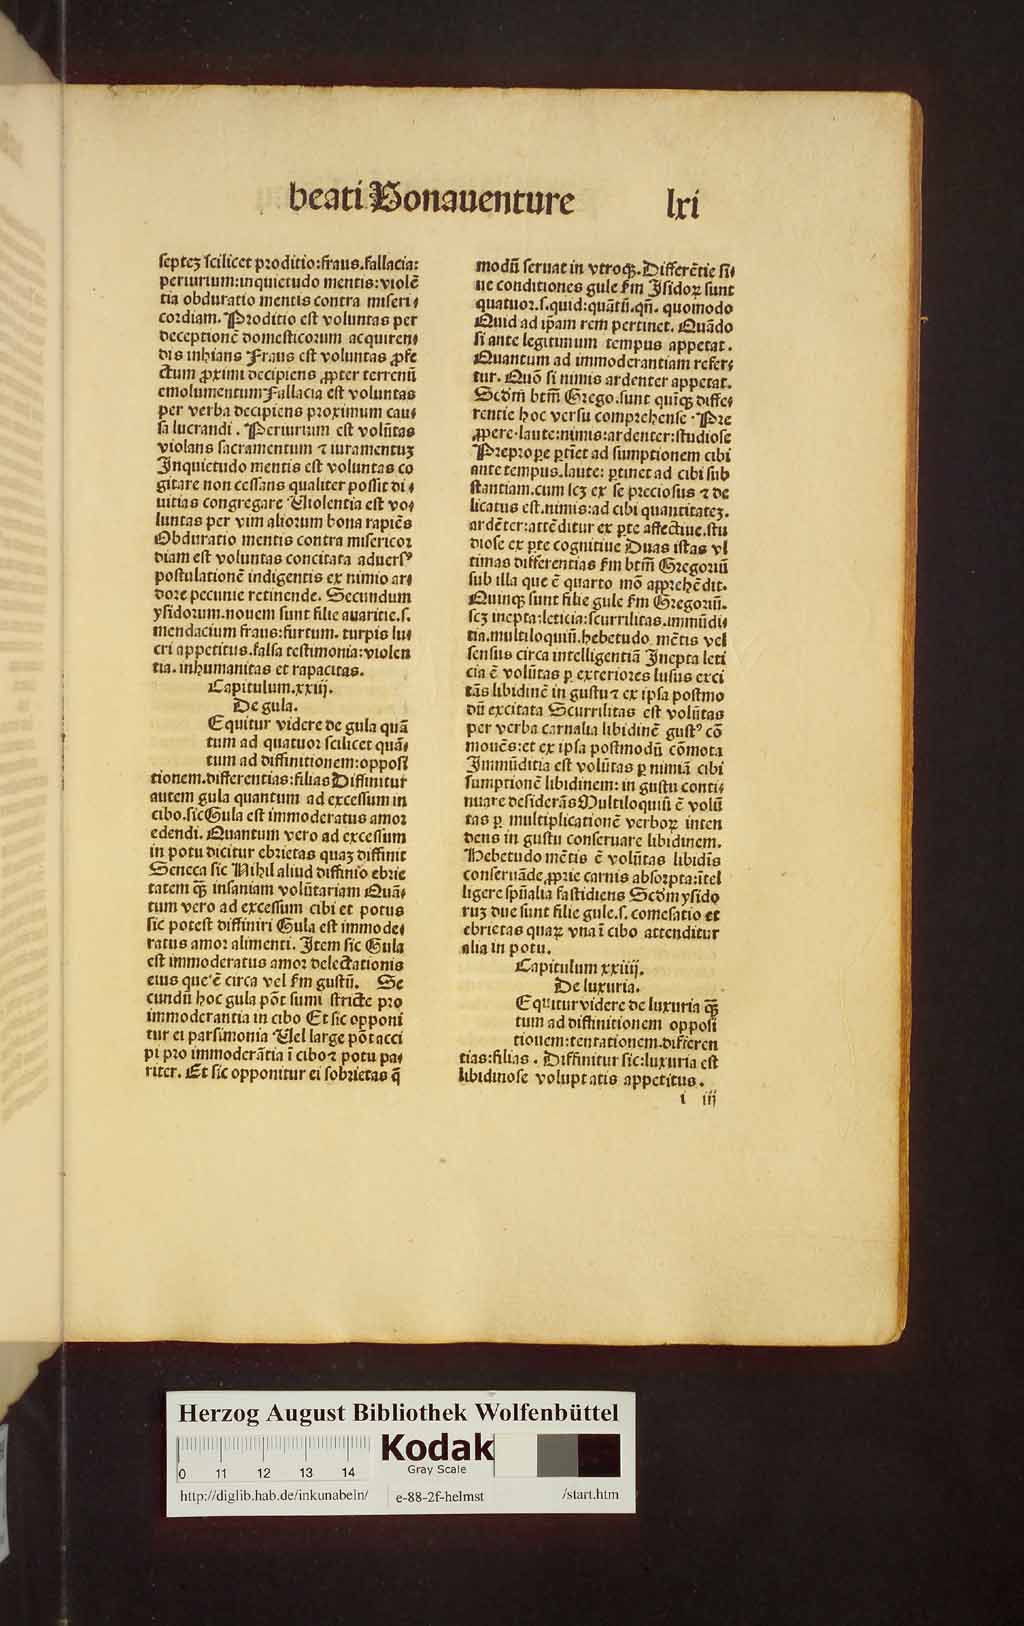 beati Bonauenture lxi
septeꝫ scilicet proditio:fraus.fallacia:
periurium:inquietudo mentis:violē
tia obduratio mentis contra miseri⸗
cordiam. Proditio est voluntas per
deceptionē domesticorum acquiren⸗
dis inhians Fraus est voluntas ꝓfe
ctum ꝓximi decipiens ꝓpter terrenū
emolumentum Fallacia est voluntas
per verba decipiens proximum cau⸗
sa lucrandi . Periurium est volūtas
violans sacramentum ⁊ iuramentuꝫ
Inquietudo mentis est voluntas co
gitare non cessans qualiter possit di⸗
uitias congregare Violentia est vo⸗
luntas per vim aliorum bona rapiēs
Obduratio mentis contra misericor
diam est voluntas concitata aduersꝰ
postulationē indigentis ex nimio ar⸗
dore pecunie retinende. Secundum
ysidorum.nouem sunt filie auaritie.s.
mendacium fraus:furtum. turpis lu⸗
cri appetitus.falsa testimonia:violen
tia. inhumanitas et rapacitas.
Capitulum.xxiij.
De gula.
Equitur videre de gula quā
tum ad quatuor scilicet quā⸗
tum ad diffinitionem:opposi
tionem.differentias:filias Diffinitur
autem gula quantum ad excessum in
cibo.sic Gula est immoderatus amor
edendi. Quantum vero ad excessum
in potu dicitur ebrietas quaꝫ diffinit
Seneca sic Nihil aliud diffinio ebrie
tatem qꝫ̄ insaniam volūtariam Quā⸗
tum vero ad excessum cibi et potus
sic potest diffiniri Gula est immode⸗
ratus amor alimenti. Item sic Gula
est immoderatus amor delectationis
eius que ē circa vel fm gustū. Se
cundū hoc gula pōt sumi stricte pro
immoderantia in cibo Et sic opponi
tur ei parsimonia Vel large pōt acci
pi pro immoderātia ī cibo ⁊ potu pa⸗
riter. Et sic opponitur ei sobrietas q̄
modū seruat in vtroqꝫ. Differētie si⸗
ue conditiones gule fm Isidoꝝ sunt
quatuor.s.quid:quātū.qn̄. quomodo
Quid ad ip̄am rem pertinet. Quādo
si ante legitimum tempus appetat.
Quantum ad immoderantiam refer⸗
tur. Quō si nimis ardenter appetat.
Scdm̄ btm̄ Grego.sunt quiqꝫ diffe⸗
rentie hoc versu comprehense · Pre
ꝓpere·laute:nimis:ardenter:studiose
Prepropꝑe ꝑtinet ad sumptionem cibi
ante tempus.laute: ꝑtinet ad cibi sub
stantiam.cum scꝫ ex se preciosus ⁊ de
licatus est.nimis:ad cibi quantitateꝫ.
ardēter:attēditur ex ꝑte affectiue.stu
diose ex ꝑte cognitiue Duas istas vl
timas differentias fm btm̄ Gregoriū
sub illa que ē quarto mō apprehēdit.
Quinqꝫ sunt filie gule fm Gregoriū.
scꝫ inepta:leticia:scurrilitas.immūdi⸗
tia.multiloquiū.hebetudo mētis vel
sensus circa intelligentiā Inepta leti
cia ē volūtas ꝑ exteriores lusus exci
tās libidinē in gustu ⁊ ex ipsa postmo
dū excitata Scurrilitas est volūtas
per verba carnalia libidinē gustꝰ cō
mouēs:et ex ipsa postmodū cōmota
Immūditia est volūtas ꝑ nimiā cibi
sumptionē libidinem: in gustu conti⸗
nuare desiderās Multiloquiū ē volū
tas ꝑ multiplicationē verboꝝ inten
dens in gustu conseruare libidinem.
Hebetudo mētis ē volūtas libidīs
conseruāde ꝓprie carnis absorpta:ītel
ligere spūalia fastidiens Scdm ysido
ruꝫ due sunt filie gule.s. comesatio et
ebrietas quaꝝ vna ī cibo attenditur
alia in potu.
Capitulum xxiiij.
De luxuria.
Equitur videre de luxuria qꝫ̄
tum ad diffinitionem opposi
tionem:tentationem.differen
tias:filias . Diffinitur sic:luxuria est
libidinose voluptatis appetitus .
i iij
Herzog August Bibliothek Wolfenbüttel
Kodak
Gray Scale
0 11 12 13 14
http://diglib.hab.de/inkunabeln/ e-88-2f-helmst /start.htm